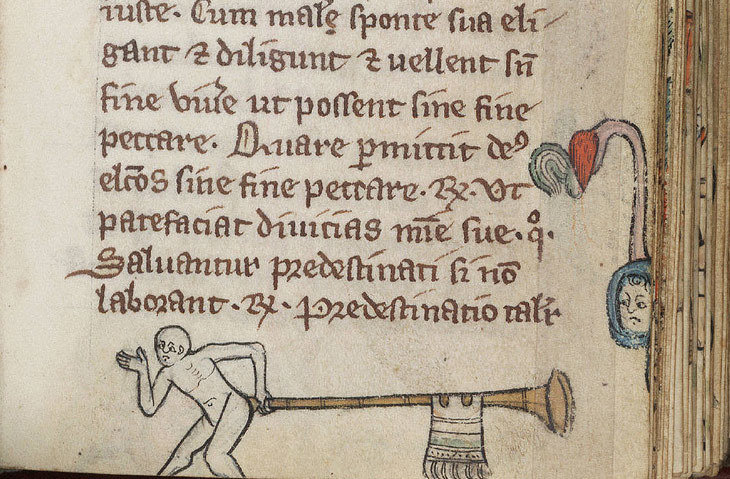 iuste. Cum male sponte sua eli-
gant ⁊ diligunt ⁊ uellent sñ
fine viue᷑ ut possent sine fine
peccare. Quare ꝑmittit deꝰ
elc̄os sine fine peccare. ℞. Vt
patefaciat diuicias mīe sue. q̊.
Saluantur predestinati si nō
laborant. ℞. Predestinatio talr̄